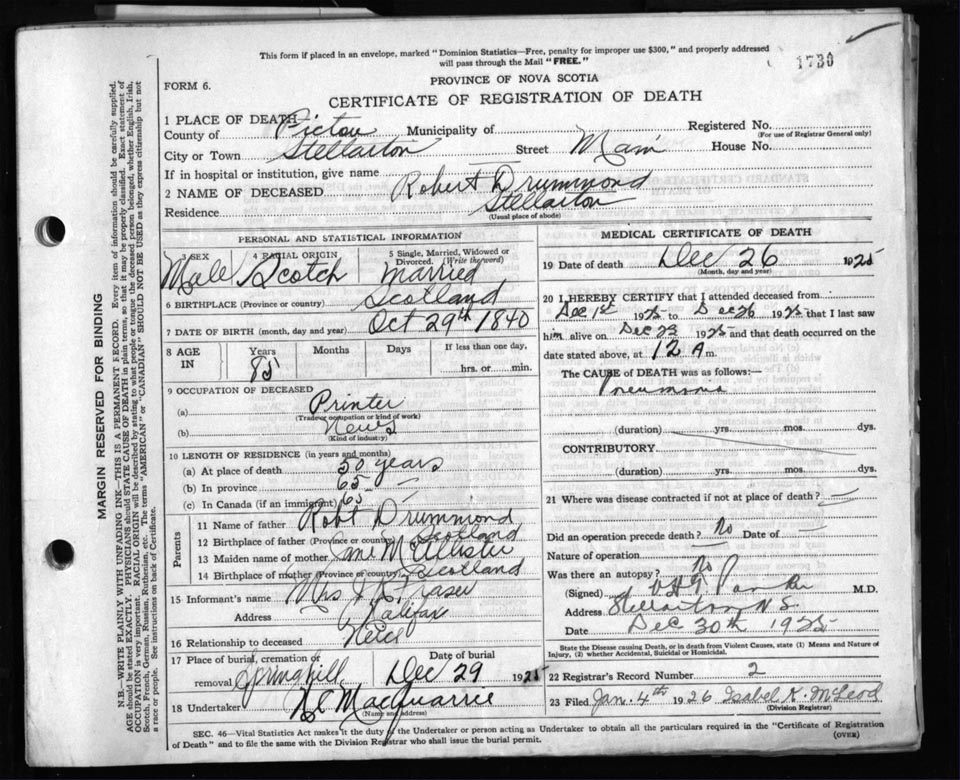 This form if placed in an envelope, marked "Dominion Statistics—Free, penalty for improper use $300," and properly addressed
will pass through the Mail "FREE."
1730
PROVINCE OF NOVA SCOTIA
FORM 6.
CERTIFICATE OF REGISTRATION OF DEATH
1 PLACE OF DEATH
County of Pictou Municipality of Registered No.
(For use of Registrar General only)
City or Town Stellarton Street Main House No.
If in hospital or institution, give name
2 NAME OF DECEASED Robert Drummond
Residence Stellarton
(Usual place of abode)
PERSONAL AND STATISTICAL INFORMATION
3 SEX 4 RACIAL ORIGIN 5 Single, Married, Widowed or Divorced. (Write the word)
Male Scotch Married
6 BIRTHPLACE (Province or country) Scotland
7 DATE OF BIRTH (month, day and year) Oct 29th 1840
8 AGE IN Years Months Days If less than one day,
85 hrs. or min.
9 OCCUPATION OF DECEASED
(a) Printer
(Trade, occupation or kind of work)
(b) News
(Kind of industry)
10 LENGTH OF RESIDENCE (in years and months)
(a) At place of death 50 years
(b) In province 65
(c) In Canada (if an immigrant) 65
Parents
11 Name of father Robt Drummond
12 Birthplace of father (Province or country) Scotland
13 Maiden name of mother Jane McAllister
14 Birthplace of mother (Province or country) Scotland
15 Informant's name Mrs Fraser
Address Halifax
16 Relationship to deceased Neice
17 Place of burial, cremation or removal Springhill Date of burial Dec 29 1925
18 Undertaker MacQuarrie
(Name and address)
MEDICAL CERTIFICATE OF DEATH
19 Date of death Dec 26 1925
(Month, day and year)
20 I HEREBY CERTIFY that I attended deceased from
Dec 1st 1925 to Dec 26 1925 that I last saw
him alive on Dec 23 1925 and that death occurred on the
date stated above, at 12 A m.
The CAUSE of DEATH was as follows:
Pneumonia
(duration) yrs. mos. dys.
CONTRIBUTORY
(duration) yrs. mos. dys.
21 Where was disease contracted if not at place of death?
Did an operation precede death? No Date of
Nature of operation
Was there an autopsy? No
(Signed) M.D.
Address Stellarton N.S.
Date Dec 30th 1925
State the Disease causing Death, or in death from Violent Causes, state (1) Means and Nature of
Injury, (2) whether Accidental, Suicidal or Homicidal.
22 Registrar's Record Number 2
23 Filed Jan. 4th 1926 Isabel K. McLeod
(Division Registrar)
SEC. 46—Vital Statistics Act makes it the duty of the Undertaker or person acting as Undertaker to obtain all the particulars required in the "Certificate of Registration
of Death" and to file the same with the Division Registrar who shall issue the burial permit. (OVER)
MARGIN RESERVED FOR BINDING
N.B.—WRITE PLAINLY WITH UNFADING INK—THIS IS A PERMANENT RECORD. Every item of information should be carefully supplied.
AGE should be stated EXACTLY. PHYSICIANS should STATE CAUSE OF DEATH in plain terms, so that it may be properly classified. Exact statement of
OCCUPATION is very important. RACIAL ORIGIN will be described by stating to what people or tongue the deceased person belonged, whether English, Irish,
Scotch, French, German, Russian, Ruthenian, etc. The terms "AMERICAN" or "CANADIAN" SHOULD NOT BE USED as they express citizenship but not
a race or people. See instructions on back of Certificate.